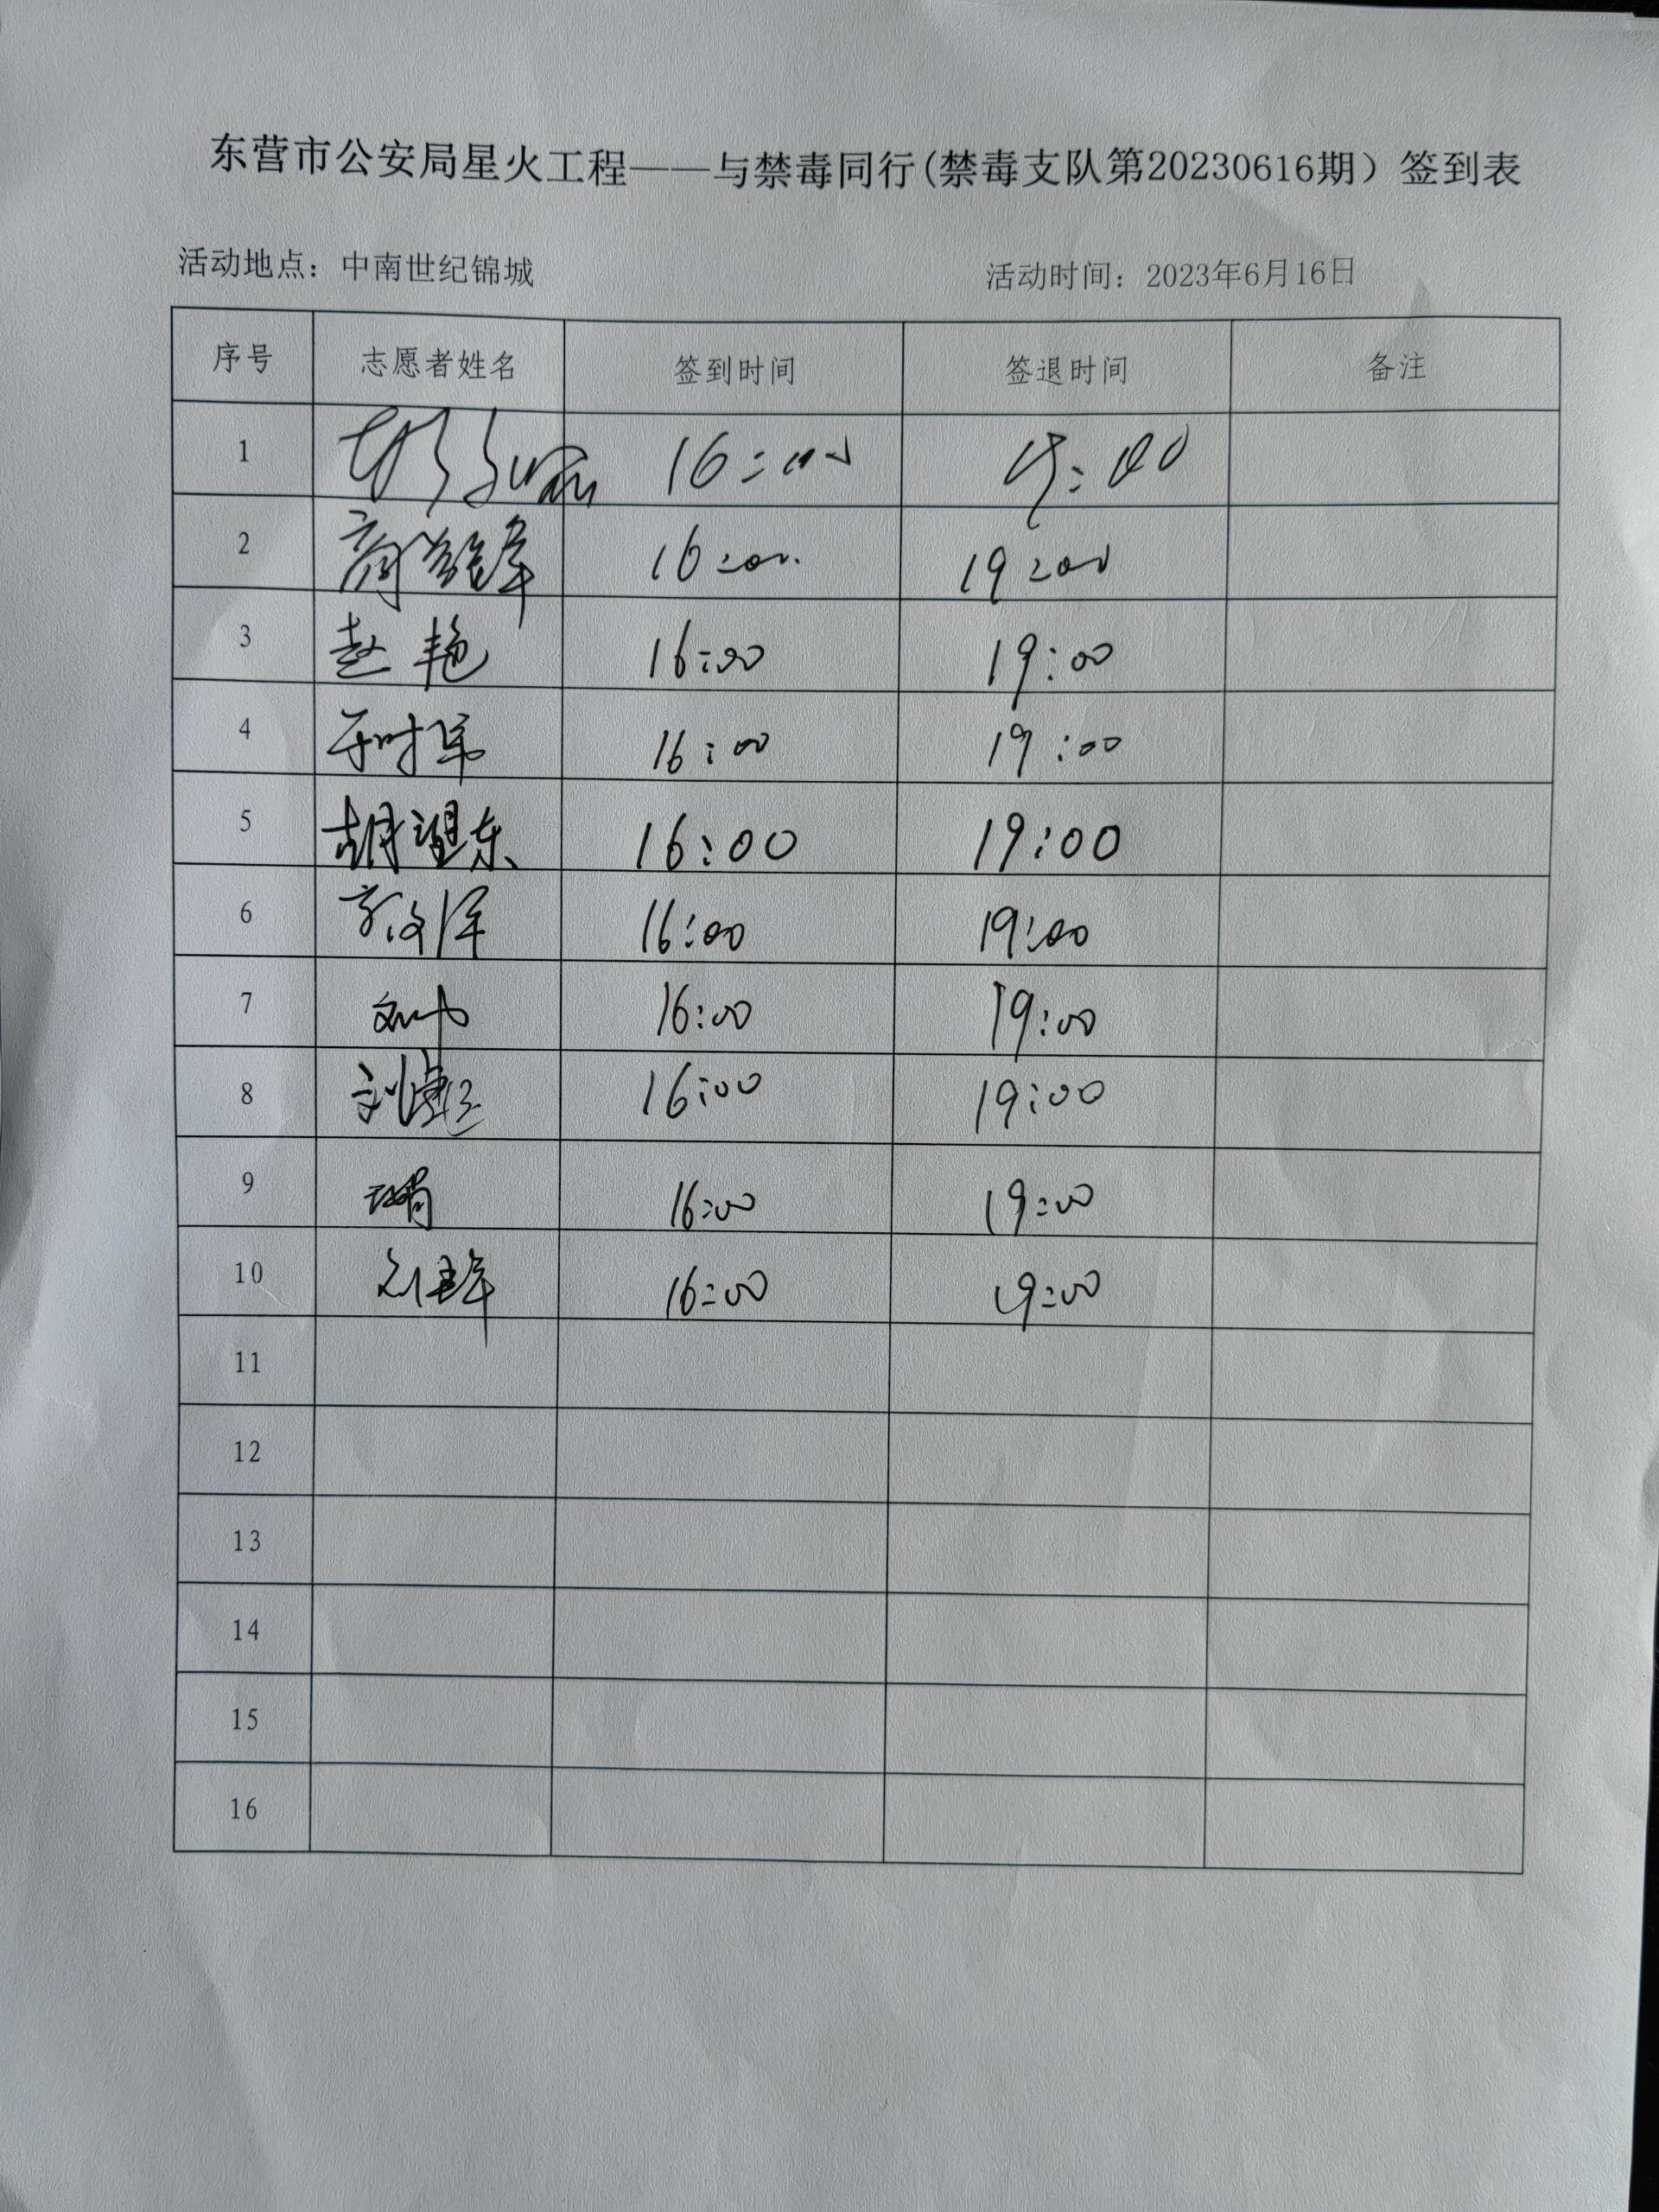 东营市公安局星火工程——与禁毒同行(禁毒支队第20230616期）签到表
活动地点：中南世纪锦城 活动时间：2023年6月16日
序号 志愿者姓名 签到时间 签退时间 备注
1 16:00 19:00
2 16:00 19:00
3 赵艳 16:00 19:00
4 于时军 16:00 19:00
5 胡望东 16:00 19:00
6 16:00 19:00
7 16:00 19:00
8 刘 16:00 19:00
9 16:00 19:00
10 刘 16:00 19:00
11
12
13
14
15
16